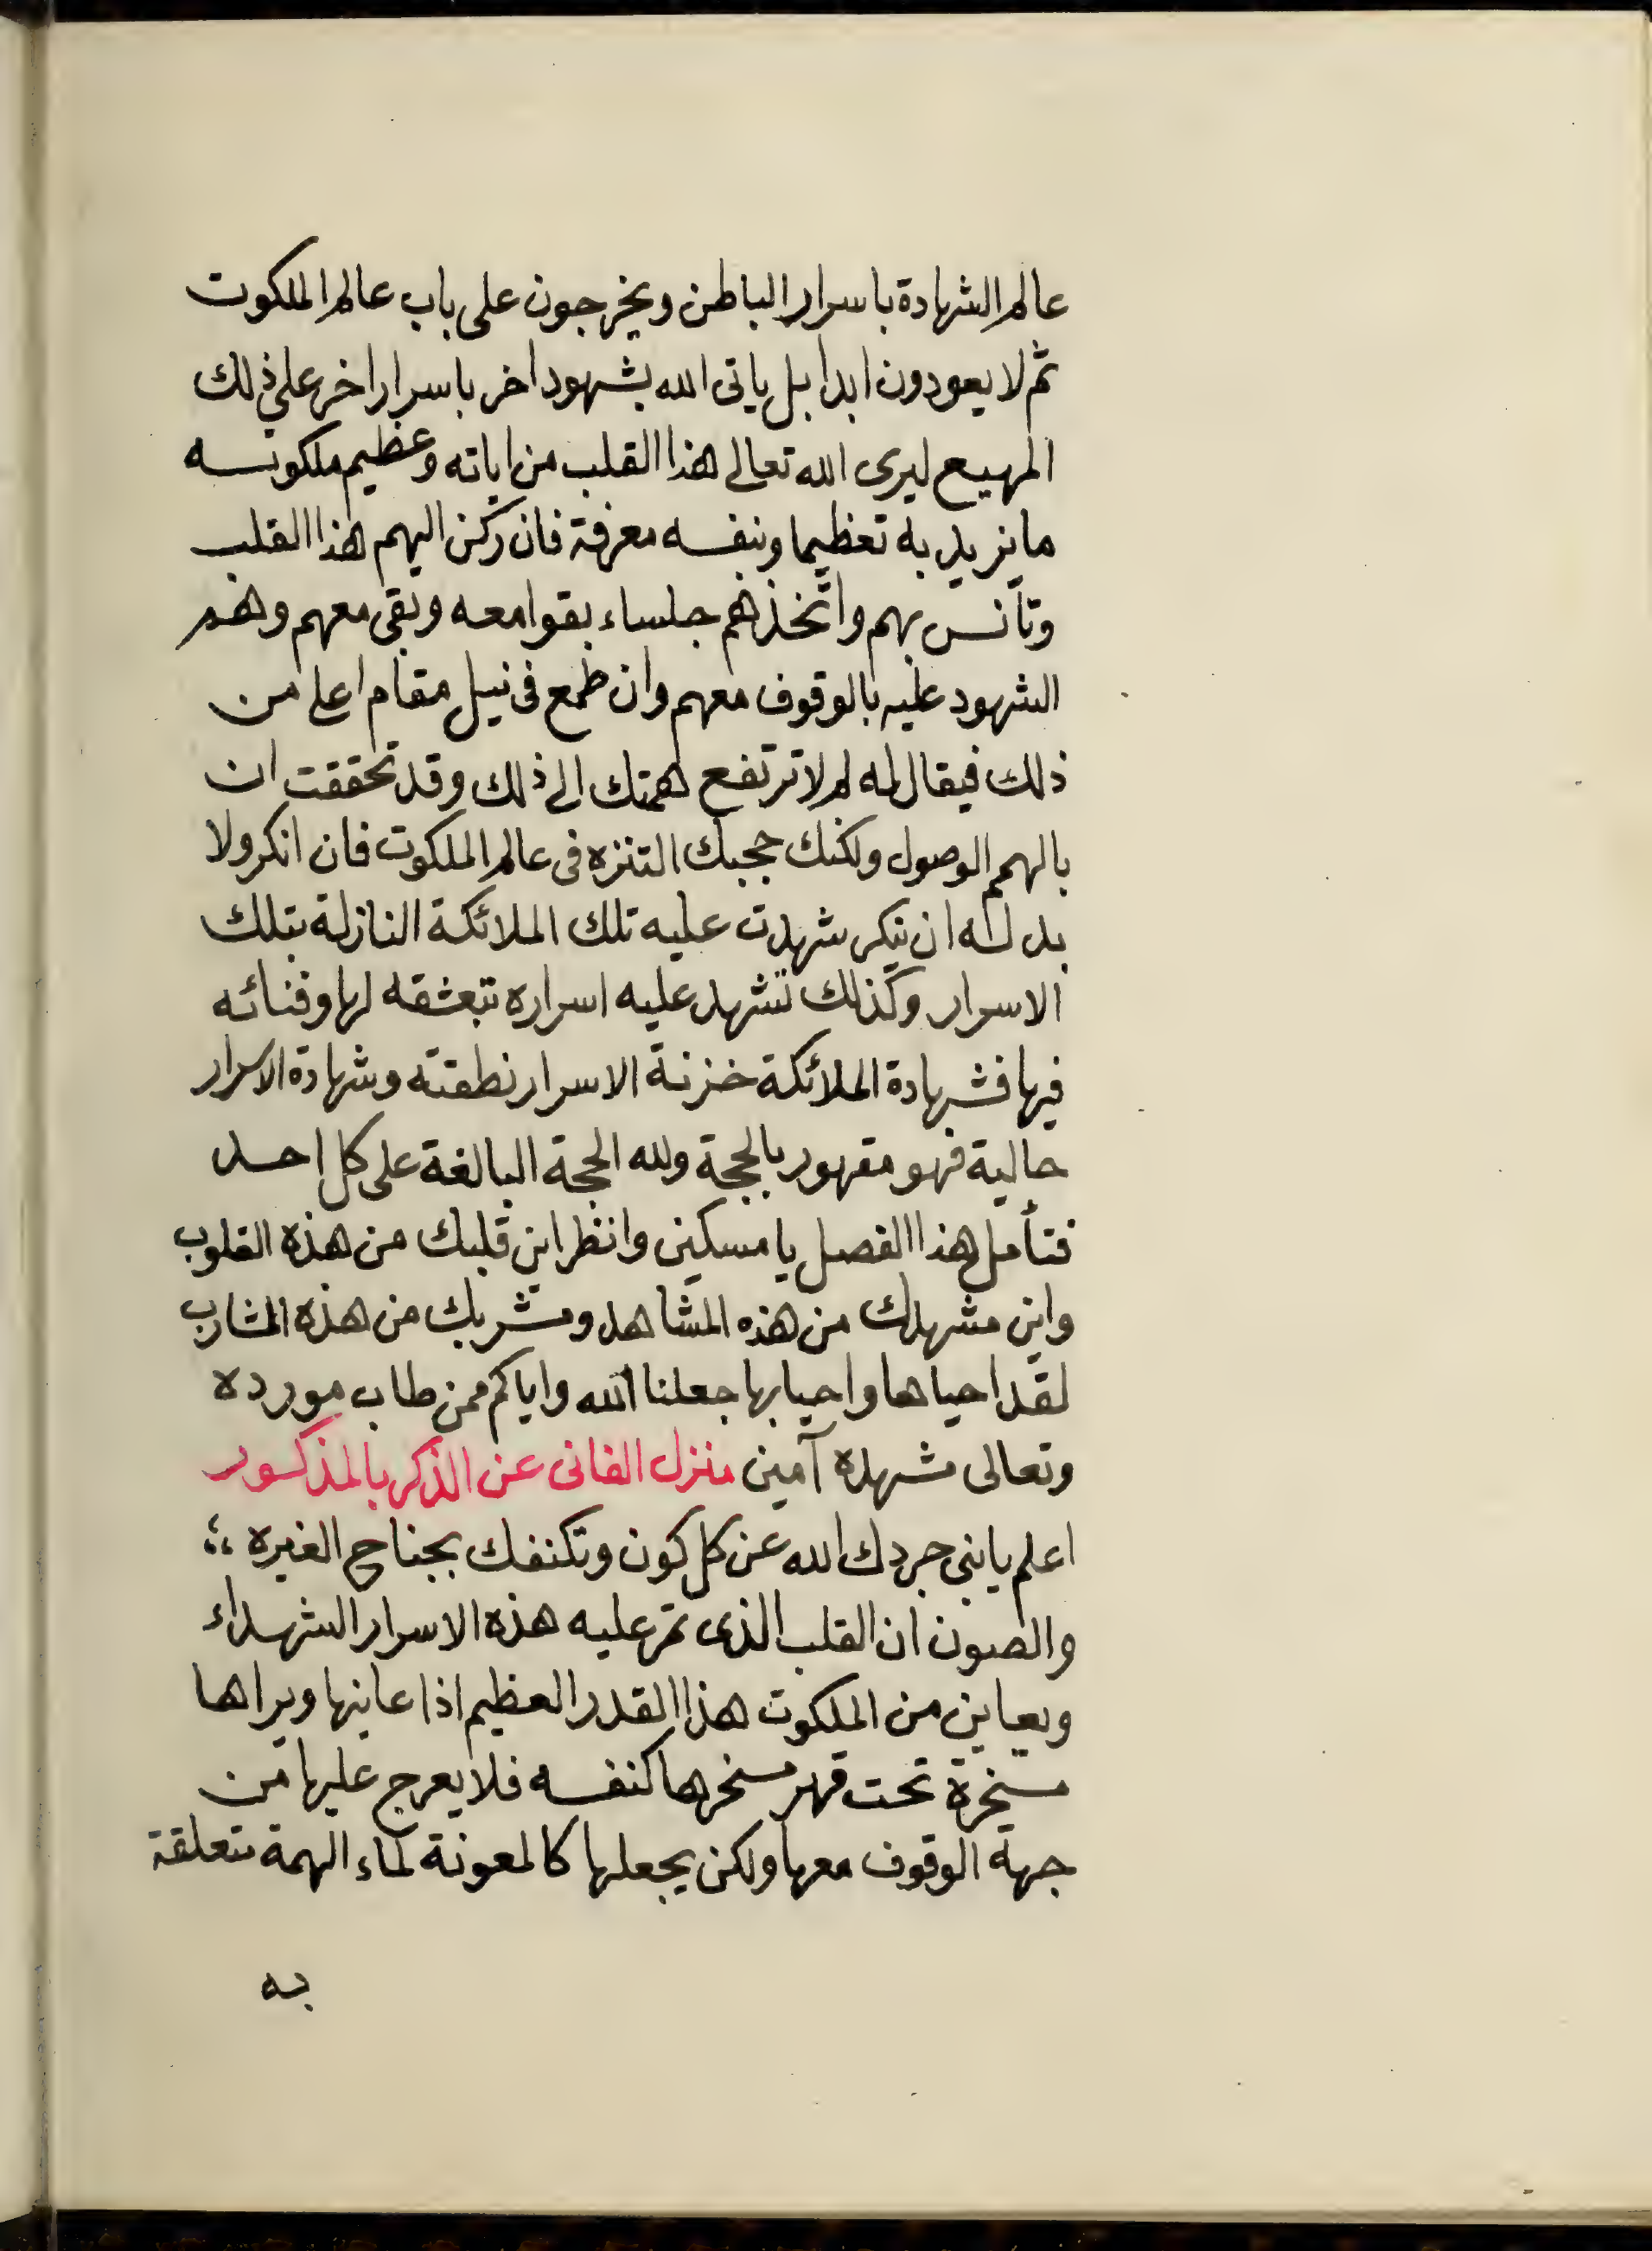 عالم الشهادة باسرار الباطن ويخرجون على باب عالم الملكوت
ثم لا يعودون ابدا بل ياتى الله بشهود اخر باسرار اخر على ذلك
المهيع ليرى الله تعالى هذا القلب من اياته وعظيم ملكوته
ما يزيد به تعظيما وبنفسه معرفة فان ركن اليهم هذا القلب
وتأنس بهم واتخذهم جلساء بقوا معه وبقى معهم وهم
الشهود عليه بالوقوف معهم وان طمع فى نيل مقام اعلى من
ذلك فيقال له لم لا ترتفع همتك الى ذلك وقد تحققت ان
بالهمم الوصول ولكنك حجبك التنزه فى عالم الملكوت فان انكر ولا
بد له ان ينكر شهدت عليه تلك الملائكة النازلة بتلك
الاسرار وكذلك تشهد عليه اسراره بتعشقه لها وفنائه
فيها فشهادة الملائكة خزنة الاسرار نطقته وشهادة الاسرار
حالية فهو مقهور بالحجة ولله الحجة البالغة على كل احد
فتأمل هذا الفصل يا مسكين وانظر اين قلبك من هذه القلوب
واين مشهدك من هذه المشاهد ومشربك من هذه المشارب
لقد احياها واحيا بها جعلنا الله واياكم ممن طاب مورده
وتعالى مشهده آمين منزل الفانى عن الذكر بالمذكور
اعلم يا بنى جردك الله عن كل كون وتكنفك بجناح الغيره
والصون ان القلب الذى تمر عليه هذه الاسرار الشهداء
ويعاين من الملكوت هذا القدر العظيم اذا عاينها ويراها
مسخرة تحت قهر مسخرها كنفسه فلا يعرج عليها من
جهة الوقوف معها ولكن يجعلها كالمعونة لماء الهمة متعلقة
به